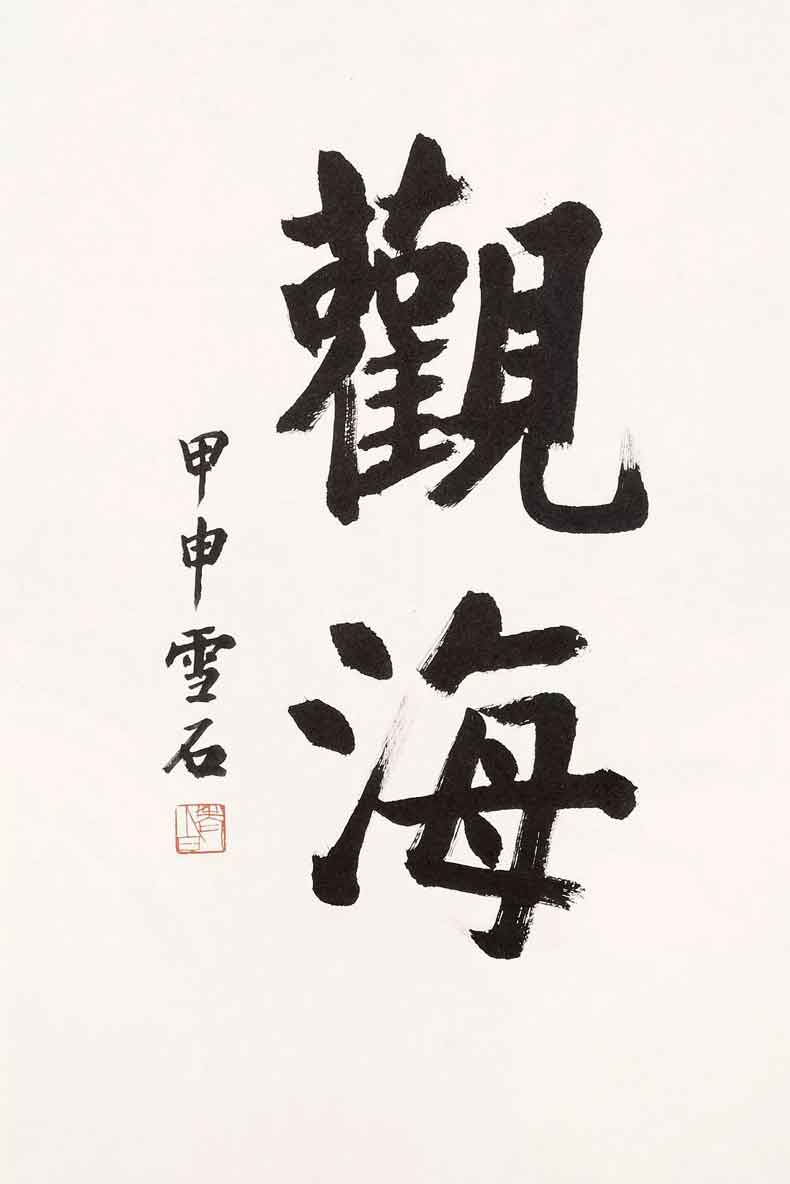 觀海
甲申雪石